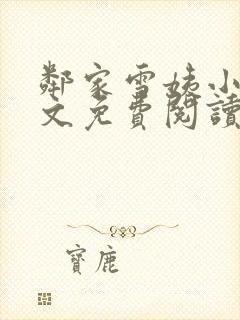 鄰家雪姨小
文免費閱讀
寶鹿